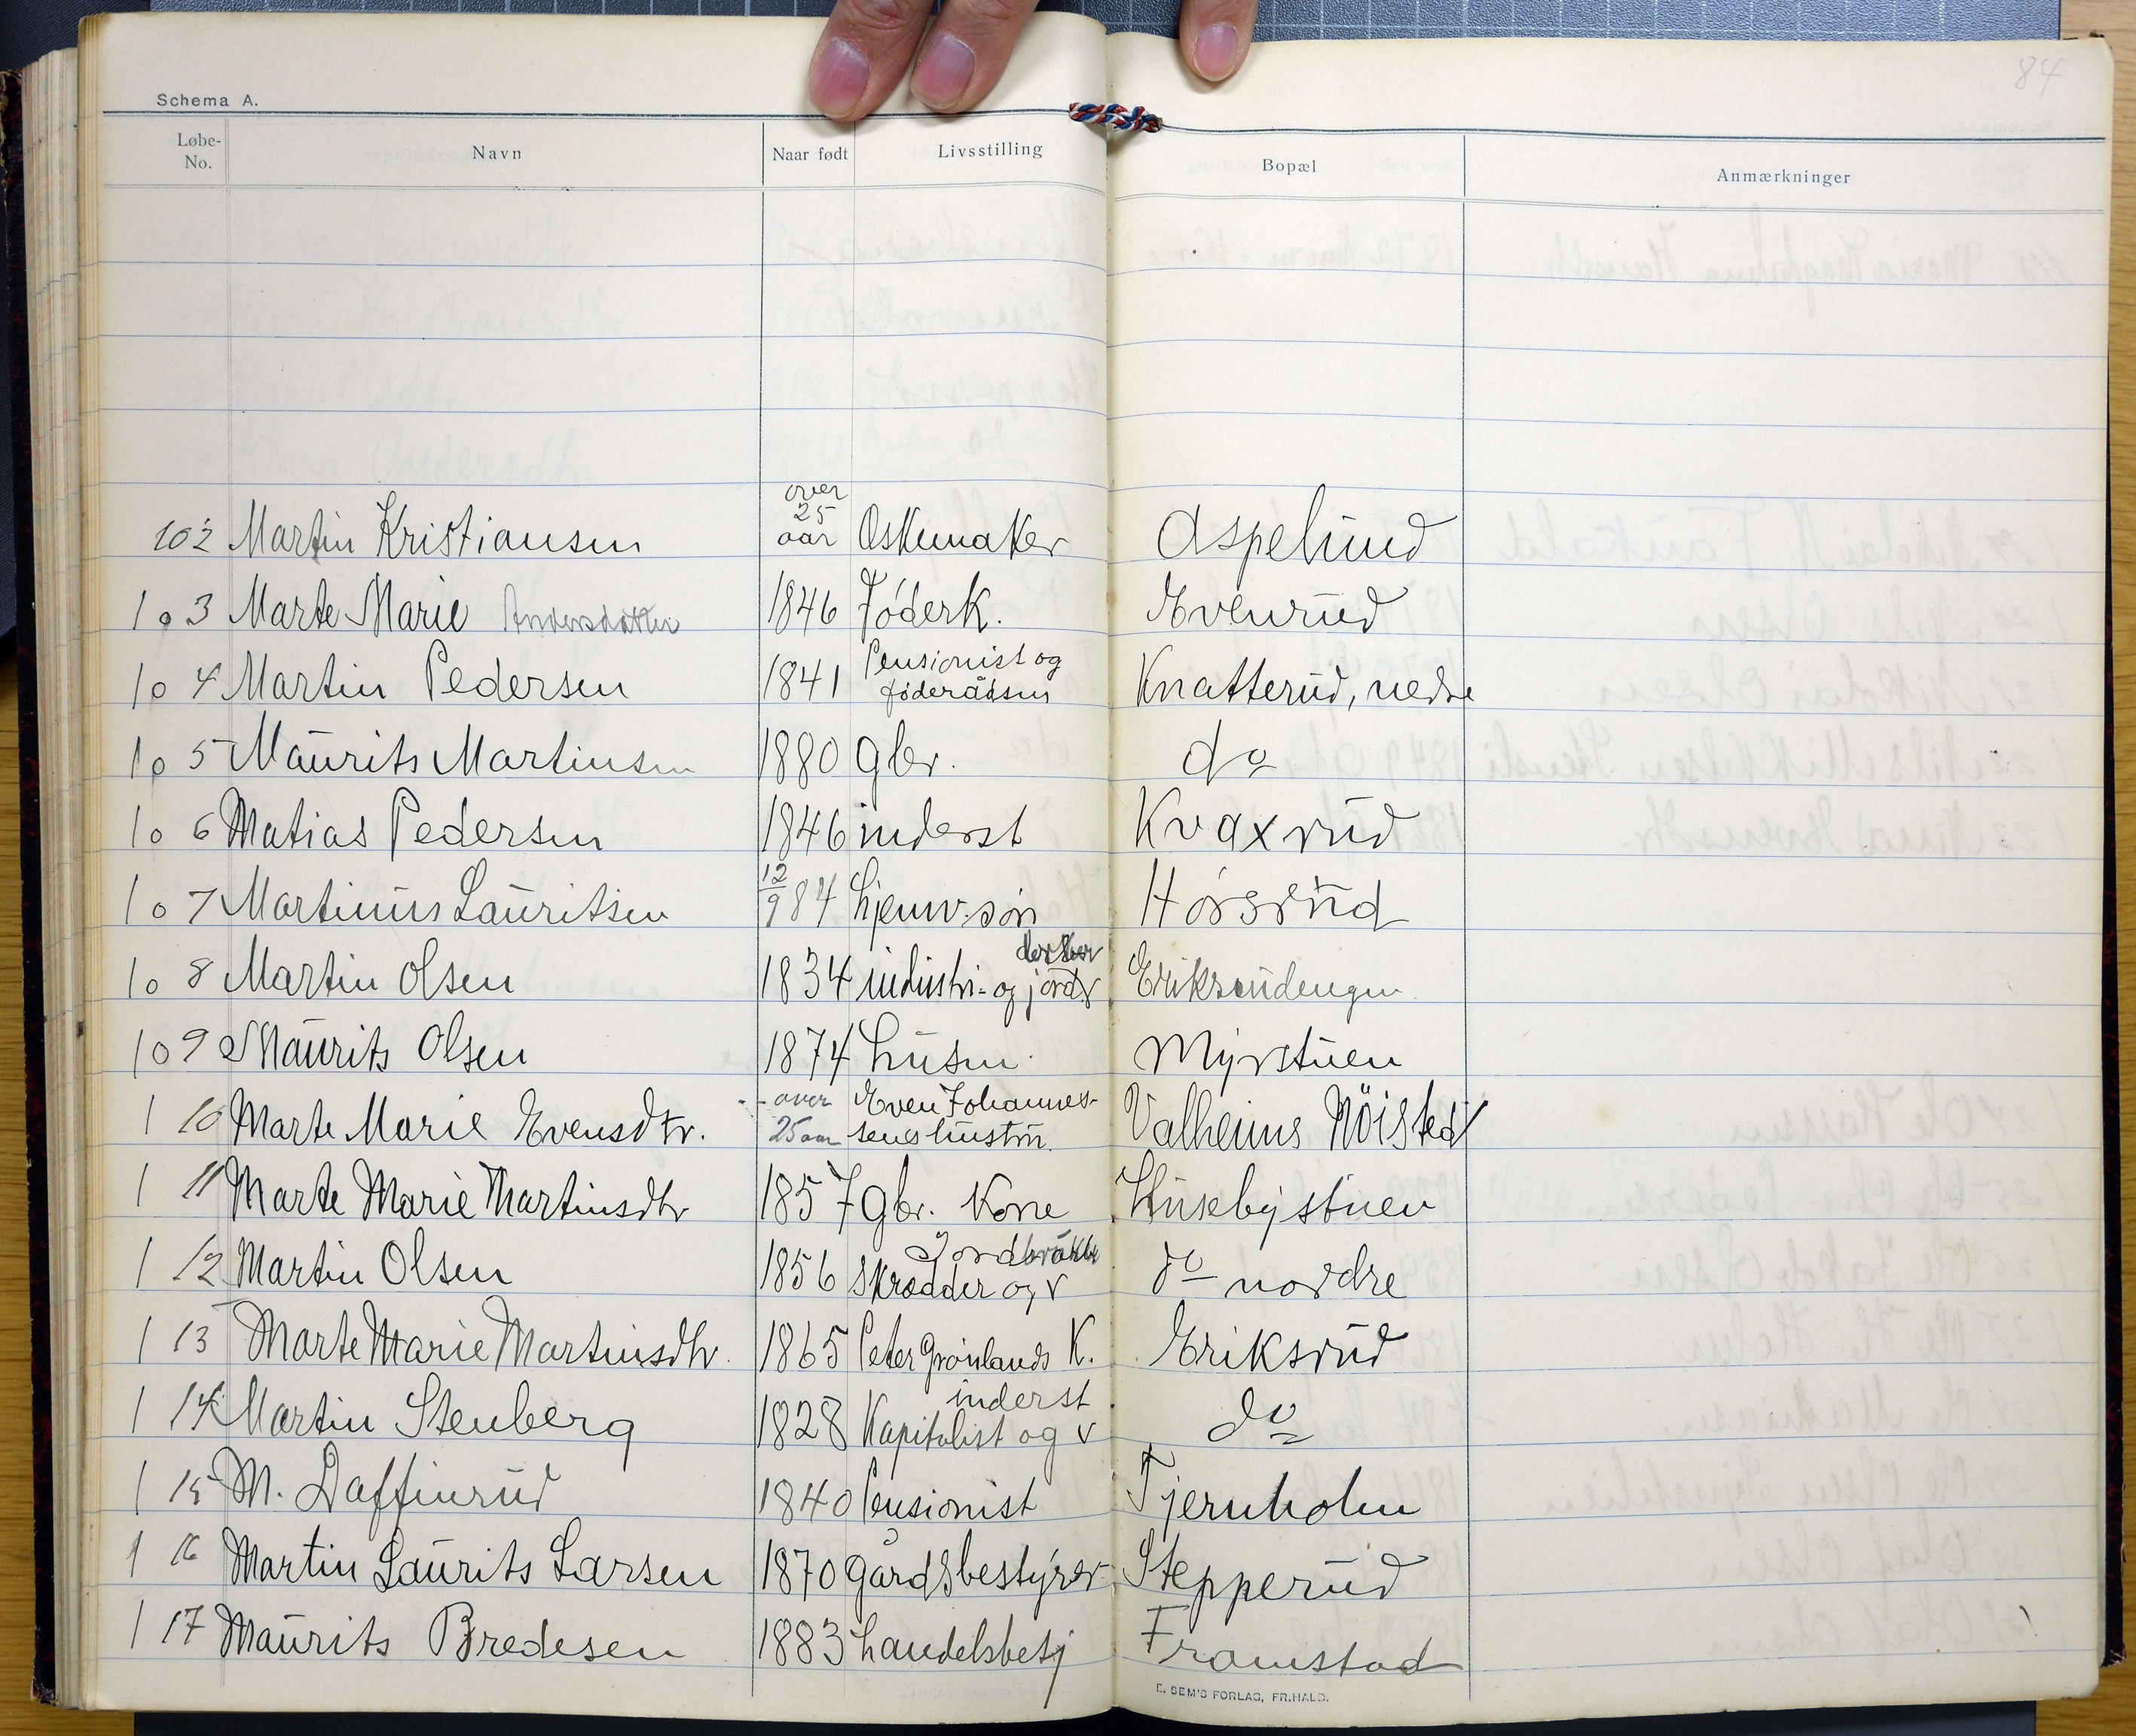 84
Schema A.
Løbe-No. Navn Naar født Livsstilling Bopæl Anmærkninger
102 Martin Kristiansen over 25 aar Øskemaker Aspelund
103 Marte Marie Andersdatter 1846 Föderk. Evenrud
104 Martin Pedersen 1841 Pensionist og föderådsm Knatterud, nedre
105 Maurits Martinsen 1880 gbr. do
106 Matias Pedersen 1846 inderst Kvaxrud
107 Martinus Lauritsen 12/9 84 hjemv. søn Hörsrud
108 Martin Olsen 1834 industri- og jord Eriksrudengen
109 Maurits Olsen 1874 husm. Myrstuen
110 Marte Marie Evensdtr. over 25 aar Even Johannes- sens hustru. Valheims Nöisted
111 Marte Marie Martinsdtr 1857 gbr. Kone Husebystuen
112 Martin Olsen 1856 Skrædder og Jordbruker do nordre
113 Marte Marie Martinsdtr. 1865 Peter Grönlands K. Eriksrud
114 Martin Stenberg 1828 Kapitalist og inderst do
115 M. Daffinrud 1840 Pensionist Tjernholm
116 Martin Laurits Larsen 1870 Gårdsbestyrer Stepperud
117 Maurits Bredesen 1883 handelsbestj Framstad
E. SEM'S FORLAG, FR.HALD.